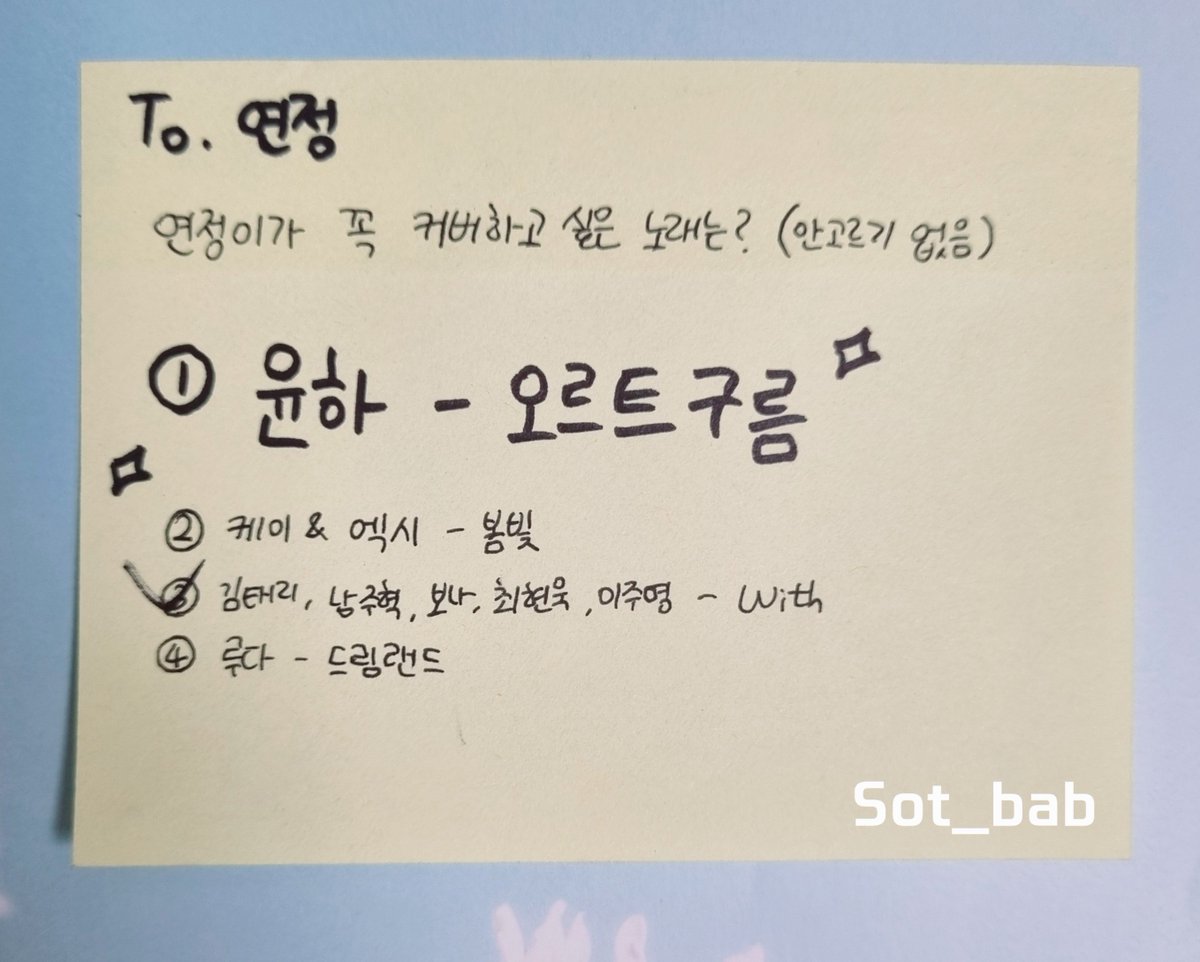 To. 연정
연정이가 꼭 커버하고 싶은 노래는? (안고르기 없음)
① 윤하 - 오르트구름
② 케이 & 엑시 - 봄빛
③ 김태리, 남주혁, 보나, 최현욱, 이주영 - With
④ 루다 - 드림랜드
Sot_bab